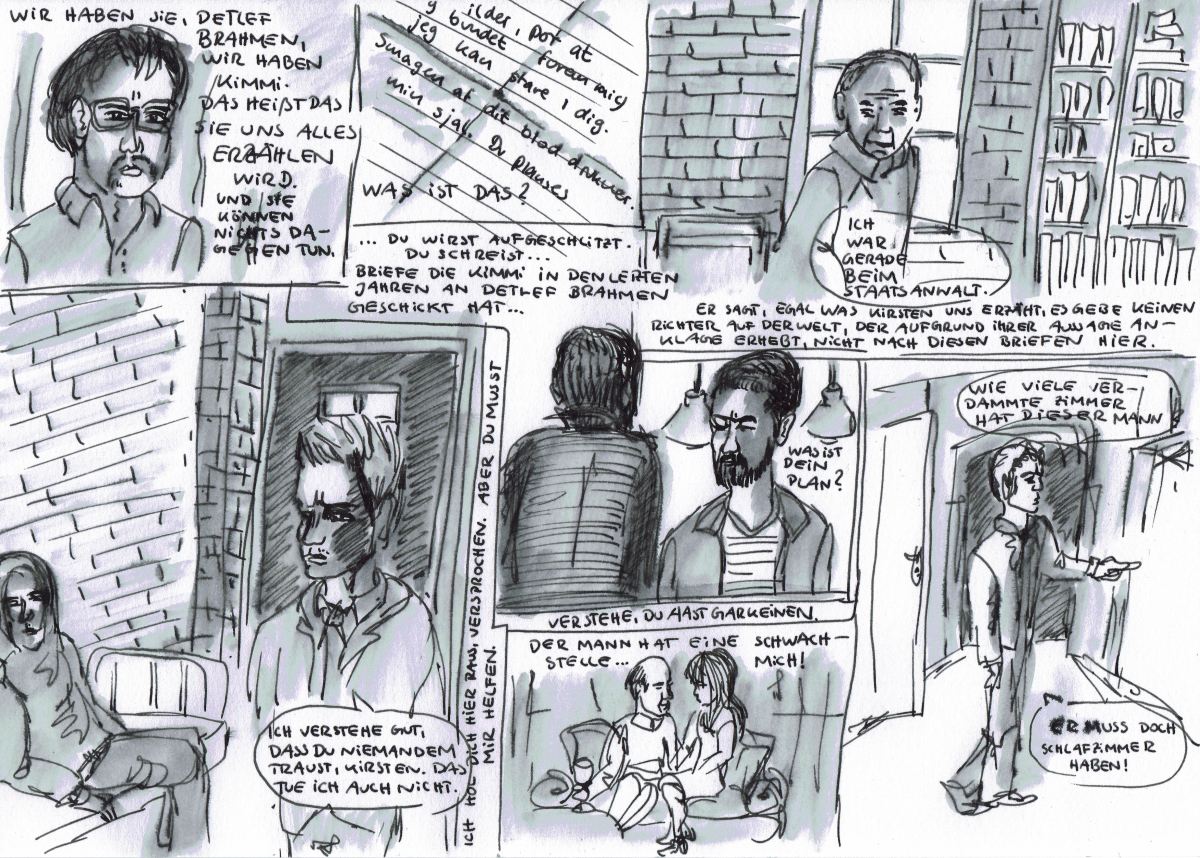 WIR HABEN SIE, DETLEF
BRAHMEN,
WIR HABEN
KIMMI.
DAS HEIßT DAS
SIE UNS ALLES
ERZÄHLEN
WIRD.
UND SIE
KÖNNEN
NICHTS DA-
GEGEN TUN.
ilder, Dot at
bundet forem mig
jeg kan stare i dig.
Smagen af dit blod drukner
min sjal. Du
WAS IST DAS?
... DU WIRST AUFGESCHLITZT.
DU SCHREIST...
BRIEFE DIE KIMMI IN DEN LETZTEN
JAHREN AN DETLEF BRAHMEN
GESCHICKT HAT...
ICH
WAR
GERADE
BEIM
STAATSANWALT.
ER SAGT, EGAL WAS KIRSTEN UNS ERZÄHT, ES GEBE KEINEN
RICHTER AUF DER WELT, DER AUFGRUND IHRER AUSSAGE AN-
KLAGE ERHEBT, NICHT NACH DIESEN BRIEFEN HIER.
ICH VERSTEHE GUT,
DASS DU NIEMANDEM
TRAUST, KIRSTEN. DAS
TUE ICH AUCH NICHT.
ICH HOL DICH HIER RAUS, VERSPROCHEN. ABER DU MUSST
MIR HELFEN.
WAS IST
DEIN
PLAN?
VERSTEHE, DU HAST GARKEINEN.
DER MANN HAT EINE SCHWACH-
STELLE... MICH!
WIE VIELE VER-
DAMMTE ZIMMER
HAT DIESER MANN
ER MUSS DOCH
SCHLAFZIMMER
HABEN!